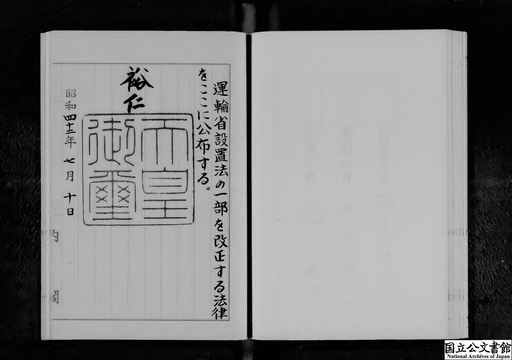 運輸省設置法の一部を改正する法律
をここに公布する。
裕仁
天皇
御璽
昭和四十三年七月十日
内閣
国立公文書館
National Archives of Japan